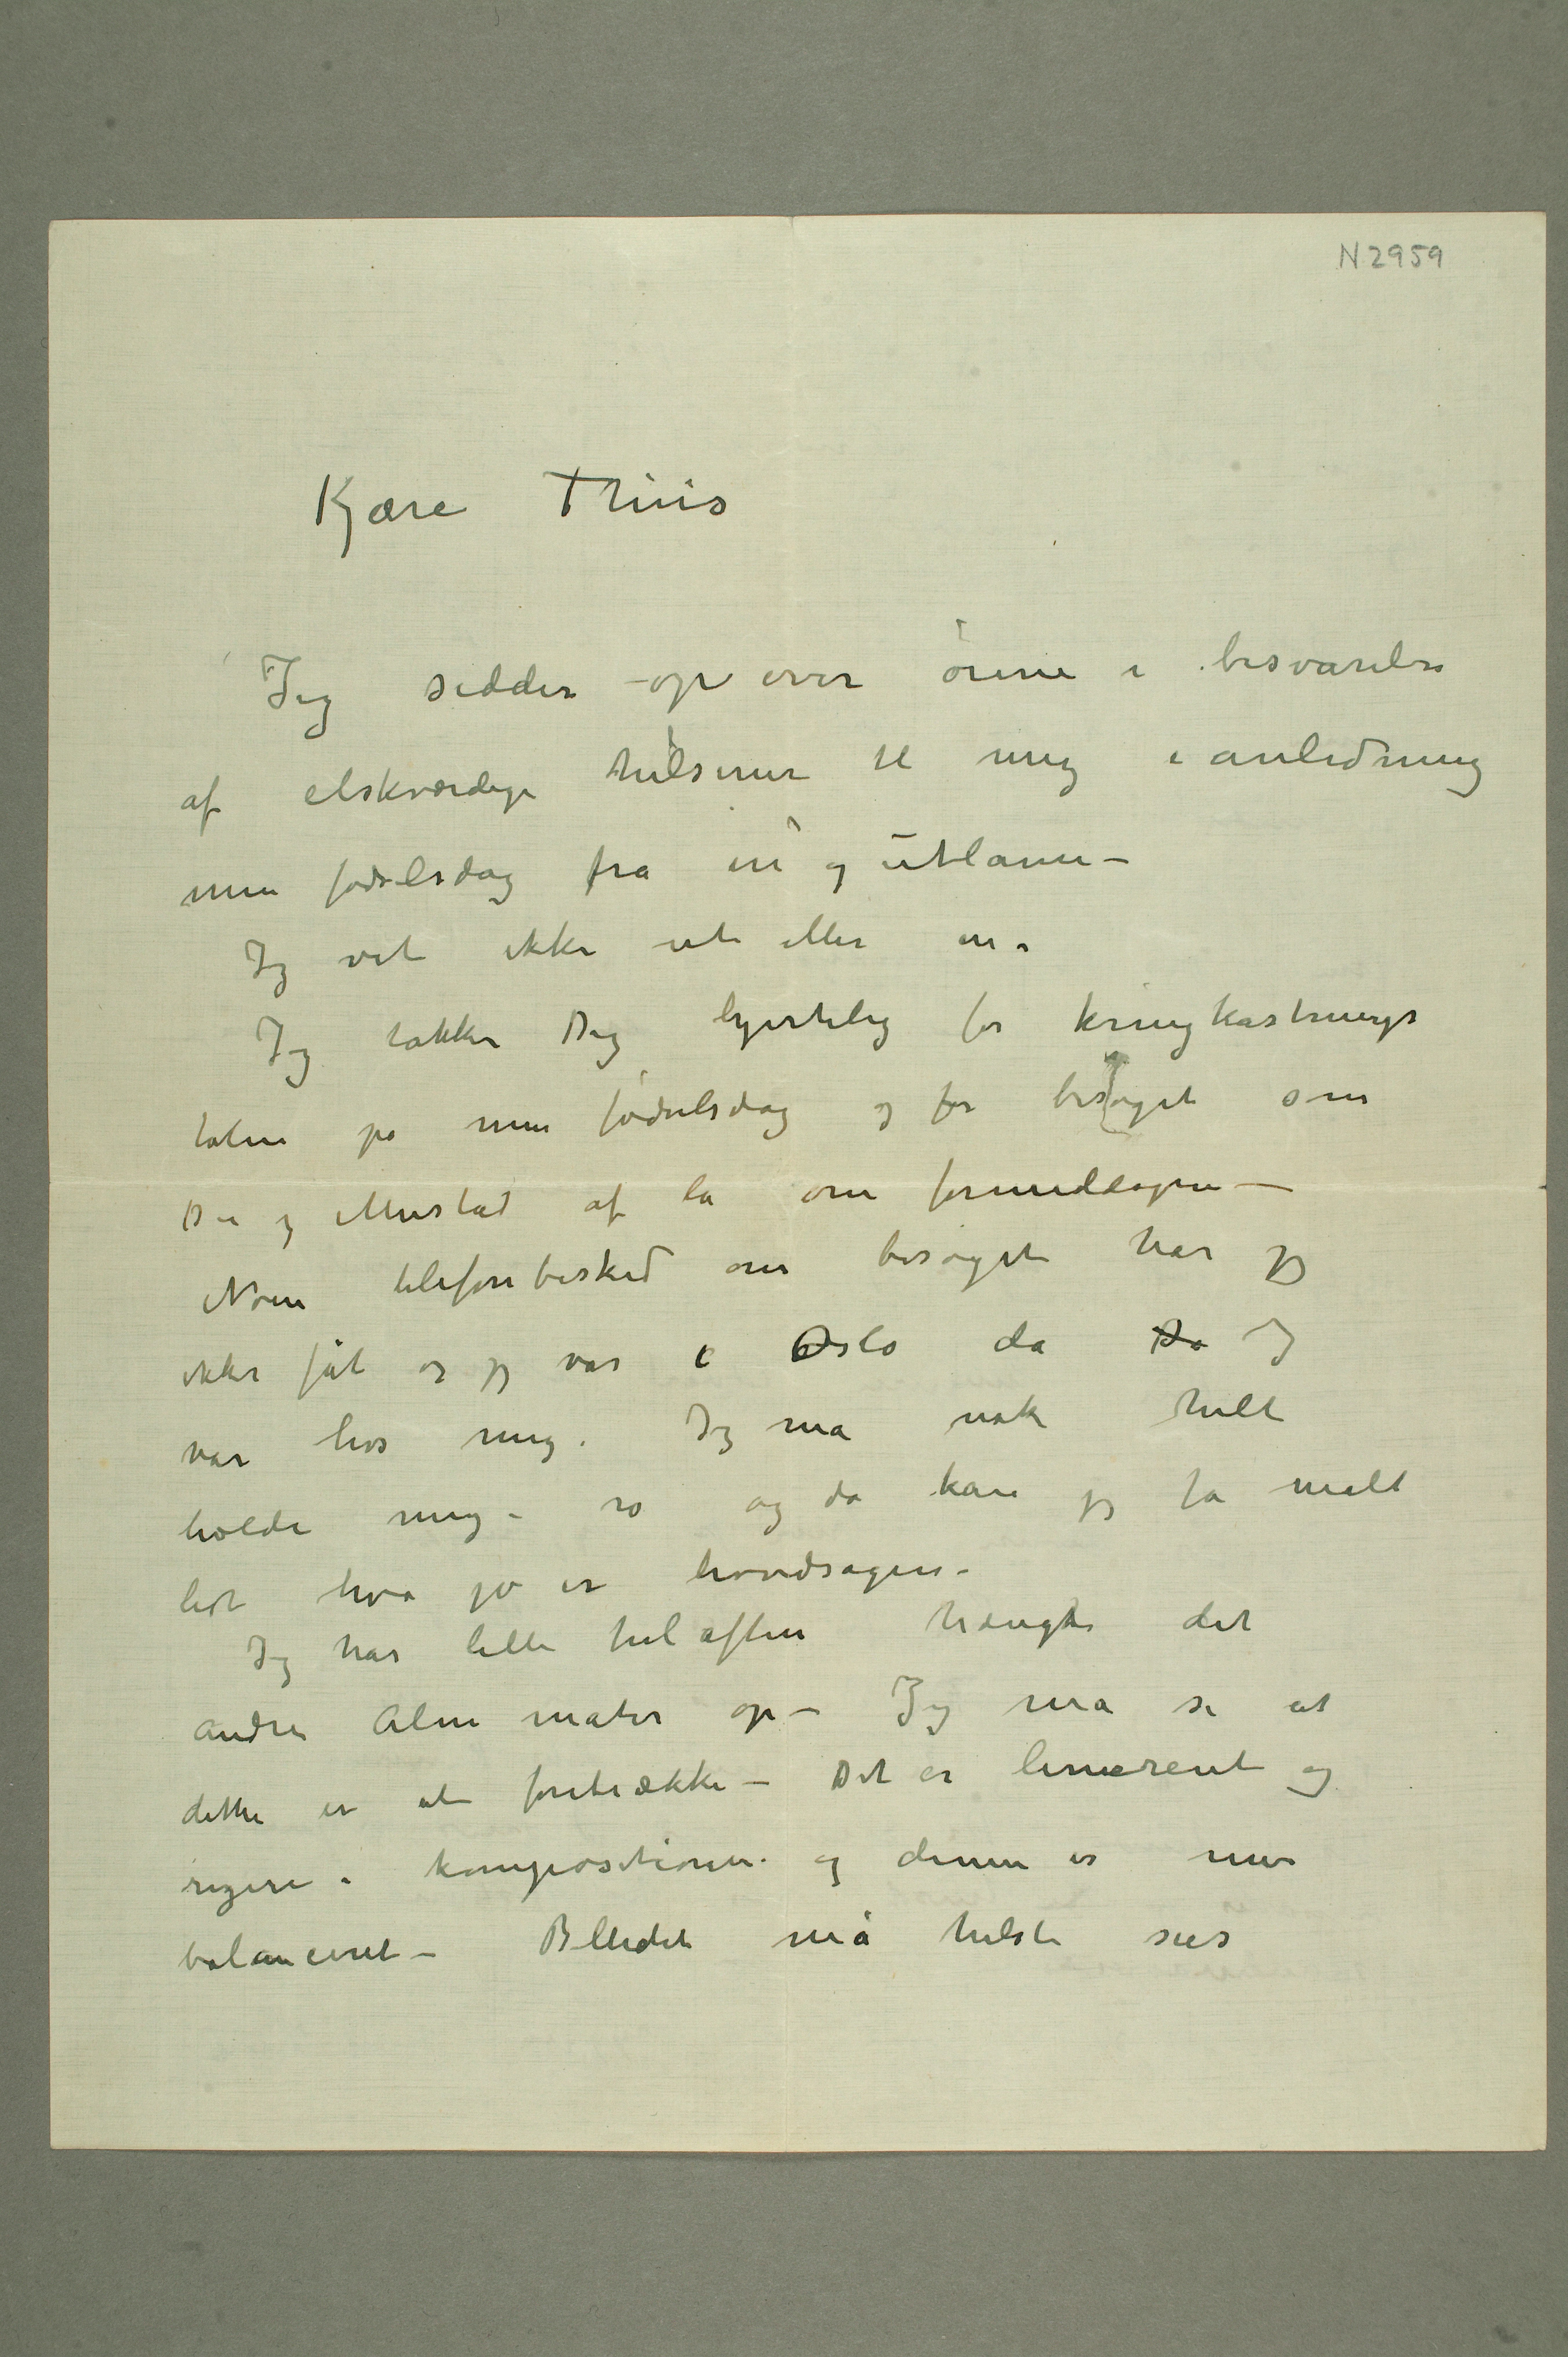 N 2959
Kjære Thiis
Jeg sidder op over ørene i besvarelse
af elskværdige hilsener til mig i anledning
min fødselsdag fra in og utlann –
Jeg vet ikke ut eller in.
Jeg takker Dig hjertelig for kringkastnings
talen på min fødselsdag og for besøget som
Du og Mustad af la om formiddagen –
Noen telefonbesked om besøget har jeg
ikke fåt og jeg var i Oslo da Du I
var hos mig. Jeg må nok helt
holde mig i ro og da kan jeg få malt
lidt hva jo er hovedsagen.
Jeg har lille jul aften hængt det
andre Alma mater op – Jeg må si at
dette er at foretrække – Det er
i kompositionen og denne er mer
balanceret – Billedet må helst sees